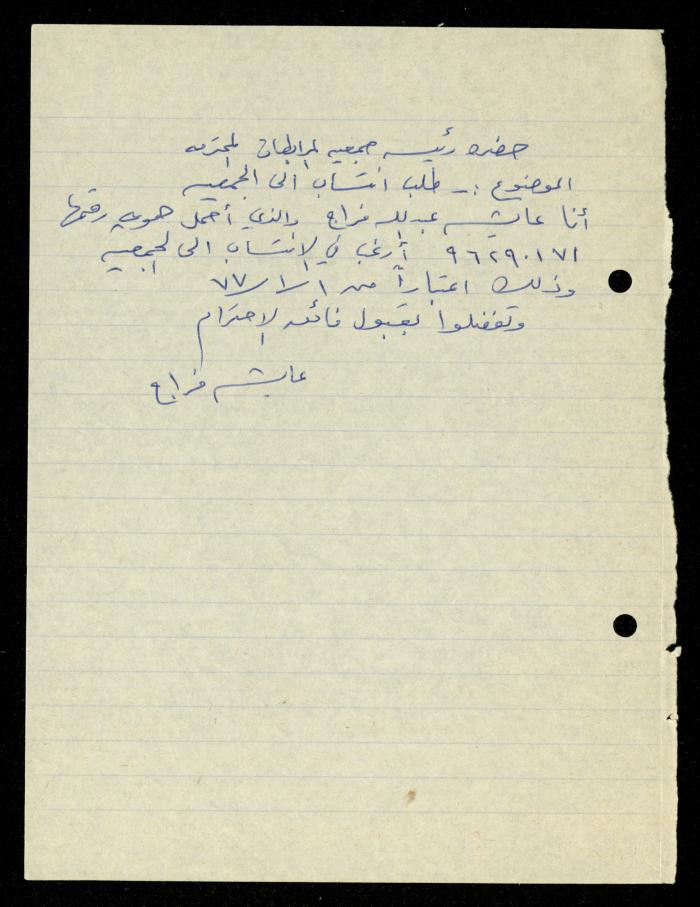 حضرة رئيسة جمعية المرابطات المحترمة
الموضوع :- طلب انتساب الى الجمعية
أنا عايشه عبدالله فراج والذي أحمل هوية رقمها
٩٦٢٩٠١٧١ أرغب في الانتساب الى الجمعية
وذلك اعتباراً من ١/١/٧٧
وتفضلوا بقبول فائق الاحترام
عايشه فراج